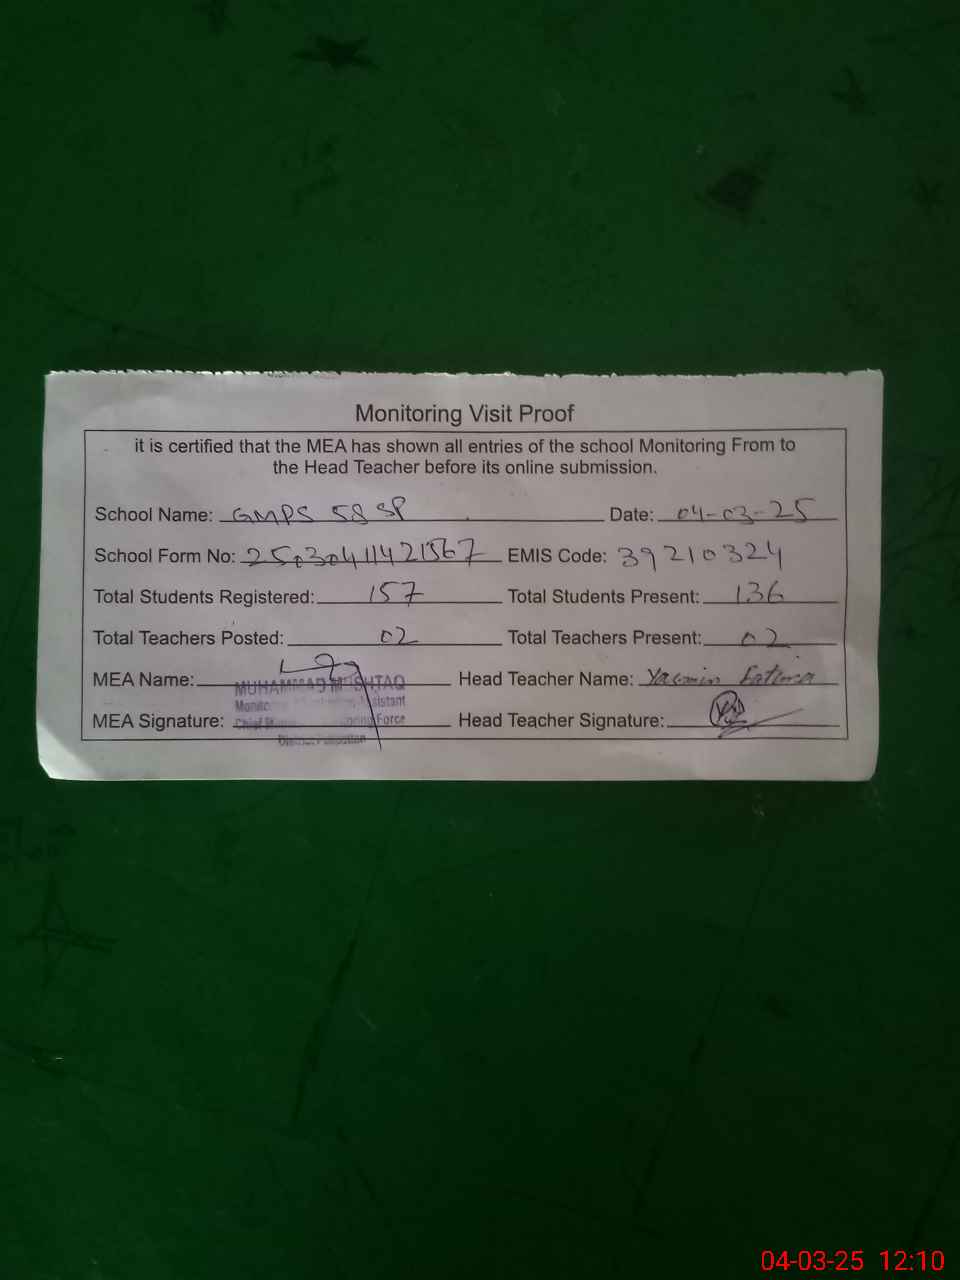 Monitoring Visit Proof
it is certified that the MEA has shown all entries of the school Monitoring From to
the Head Teacher before its online submission.
School Name: GMPS 58 SP Date: 04-03-25
School Form No: EMIS Code: 39210324
Total Students Registered: 157 Total Students Present: 136
Total Teachers Posted: 02 Total Teachers Present: 02
MEA Name: Head Teacher Name: Yasmin Fatima
MUHAMMAD MUSHTAQ
MEA Signature: Head Teacher Signature:
Force
04-03-25 12:10